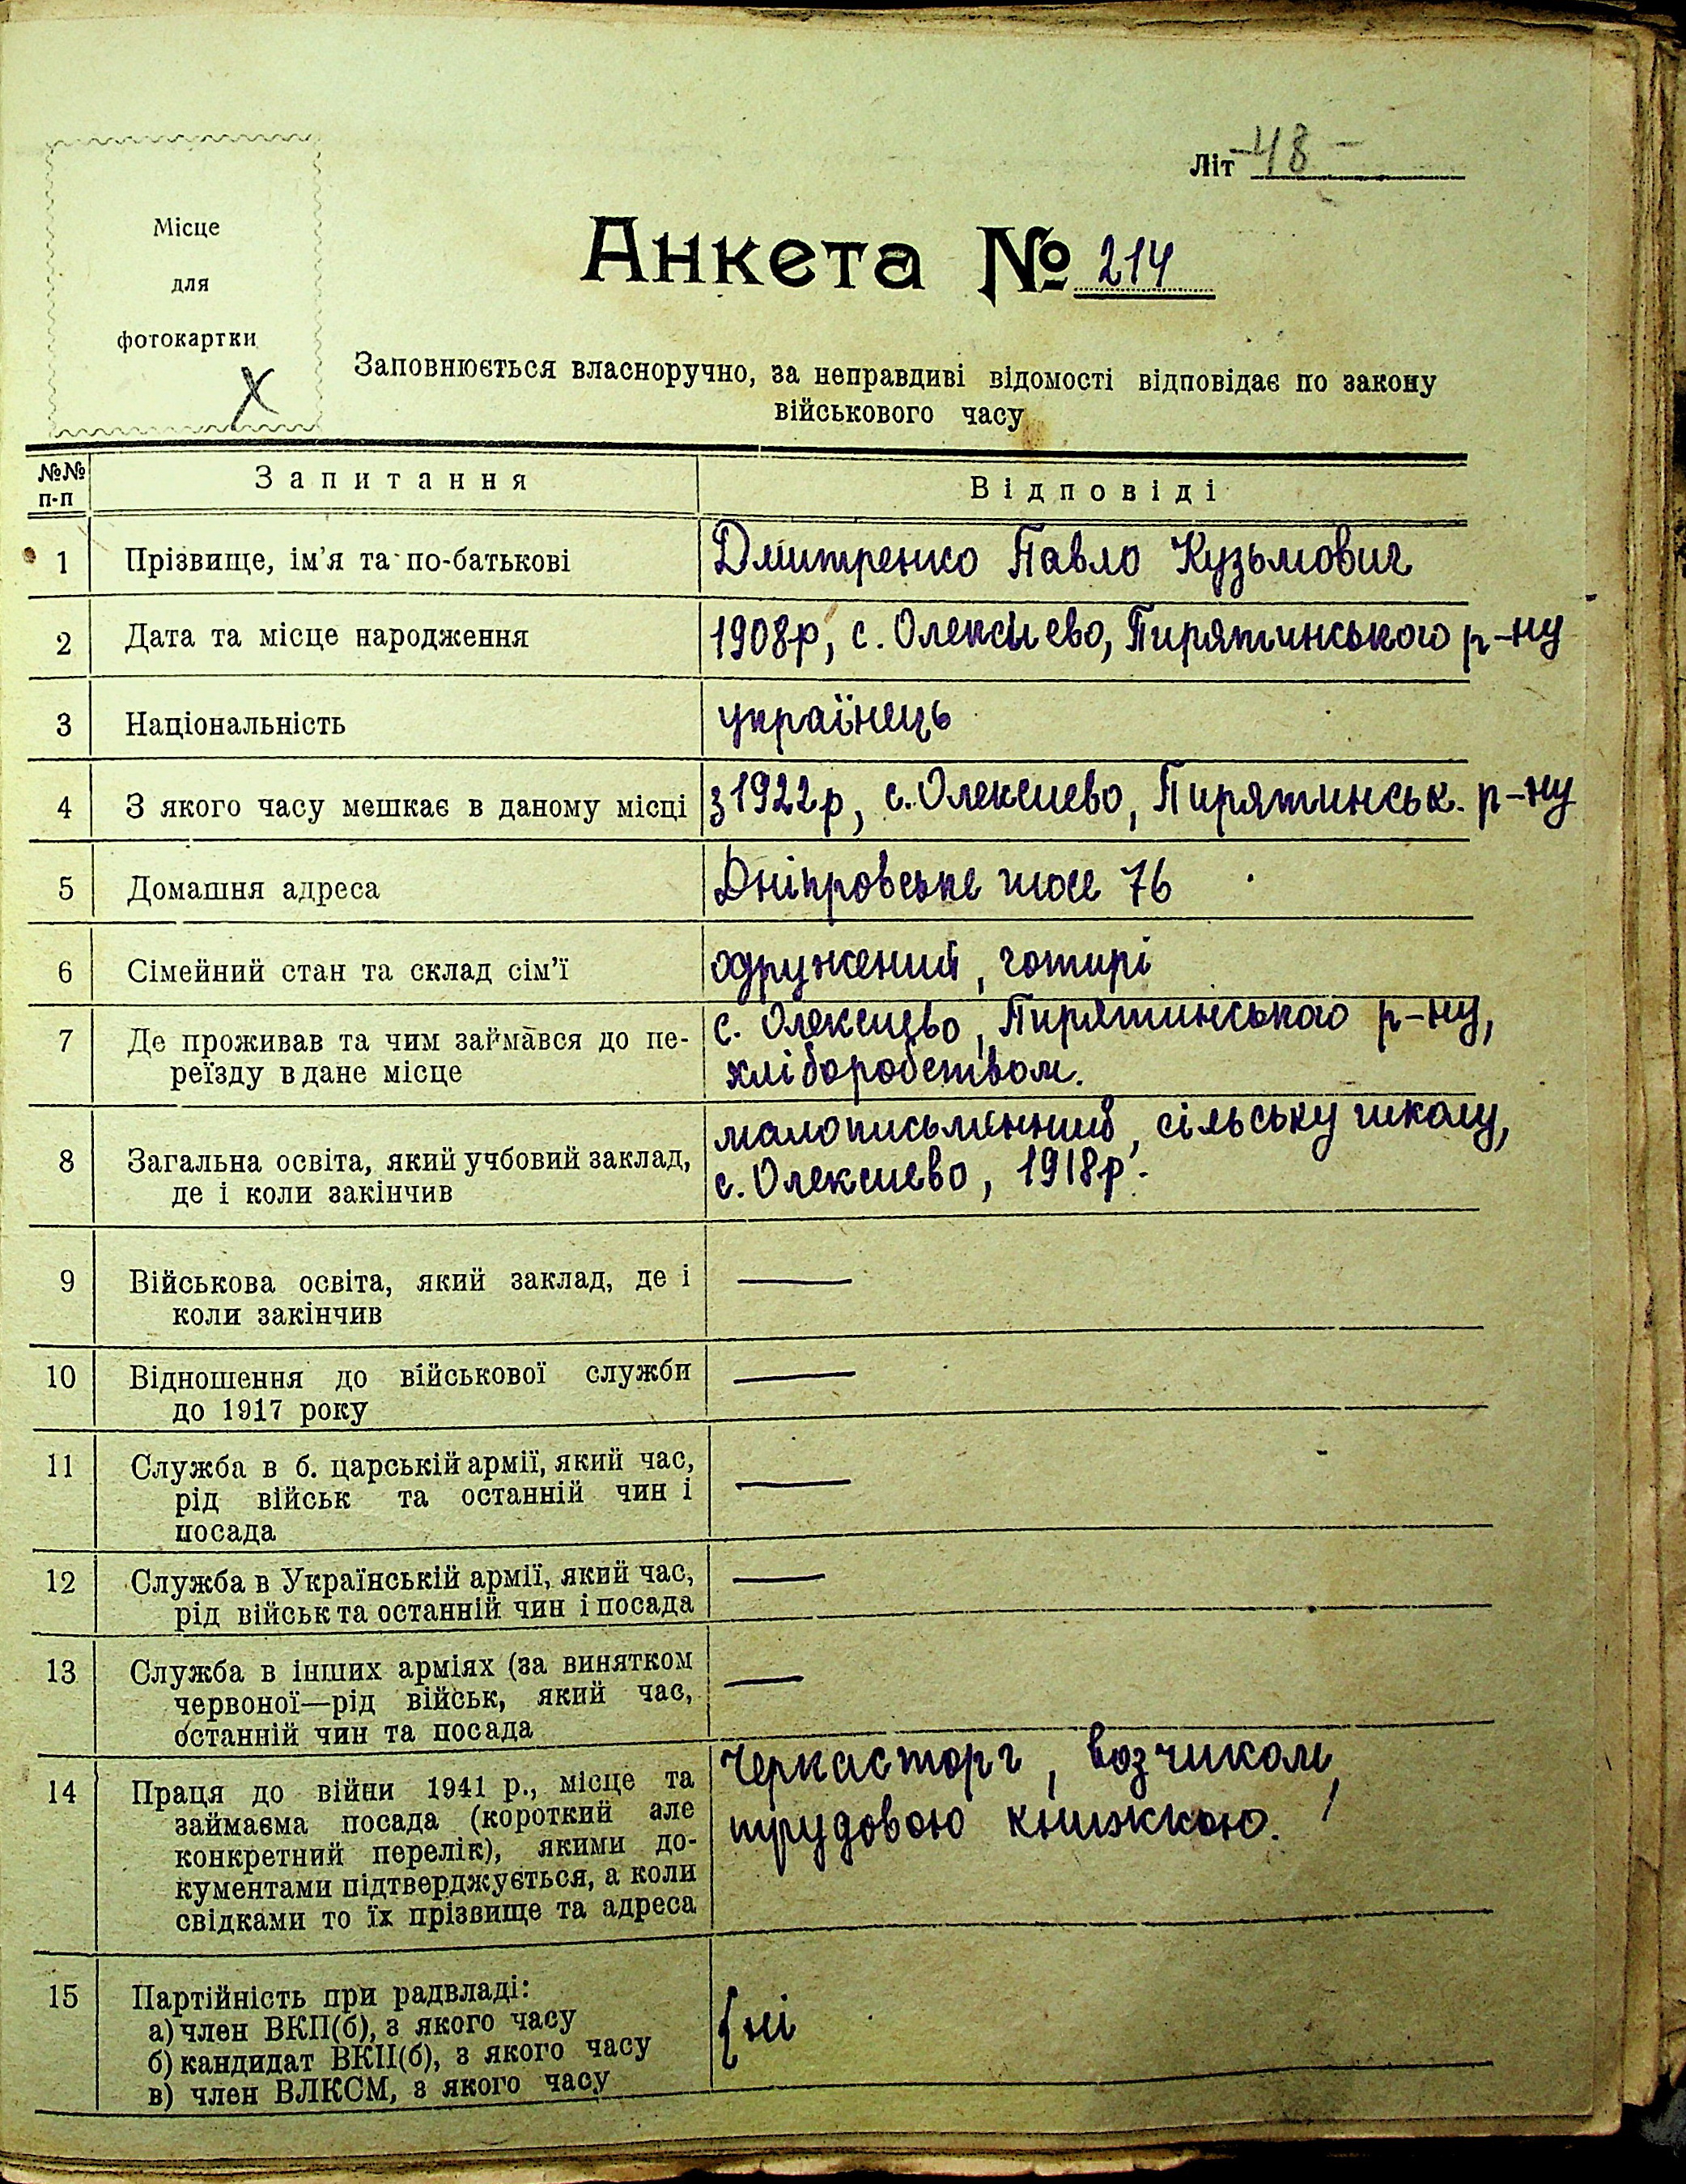 Літ -48-
Місце
для
фотокартки
X
Анкета № 214
Заповнюється власноручно, за неправдиві відомості відповідає по закону
військового часу
№№ п-п Запитання Відповіді
1 Прізвище, ім'я та по-батькові Дмитренко Павло Кузьмович
2 Дата та місце народження 1908р, с. Олексиево, Пирятинського р-ну
3 Національність українець
4 З якого часу мешкає в даному місці з 1922р, с. Олексиево, Пирятинськ. р-ну
5 Домашня адреса Дніпровське шосе 76
6 Сімейний стан та склад сім'ї одружений, чотирі
7 Де проживав та чим займався до пе- с. Олексиево, Пирятинського р-ну,
реїзду в дане місце хліборобством.
малописьменний, сільську школу,
8 Загальна освіта, який учбовий заклад, с. Олексиево, 1918р.
де і коли закінчив
9 Військова освіта, який заклад, де і —
коли закінчив
10 Відношення до військової служби —
до 1917 року
11 Служба в б. царській армії, який час, —
рід військ та останній чин і
посада
12 Служба в Українській армії, який час, —
рід військ та останній чин і посада
13 Служба в інших арміях (за винятком —
червоної—рід військ, який час,
останній чин та посада
14 Праця до війни 1941 р., місце та Черкасторг, возчиком,
займаєма посада (короткий але трудовою книжкою.
конкретний перелік), якими до-
кументами підтверджується, а коли
свідками то їх прізвище та адреса
15 Партійність при радвладі:
а) член ВКП(б), з якого часу { ні
б) кандидат ВКП(б), з якого часу
в) член ВЛКСМ, з якого часу